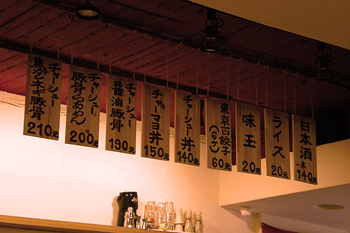 日本酒
一本
140元
ライス
20元
味玉
20元
東京口餃子
(6ケ)
60元
チャーシュー丼
140元
チャーマヨ丼
150元
チャーシュー
醤油豚骨
190元
チャーシュー
豚骨らあめん
200元
チャーシュー
豚骨
210元